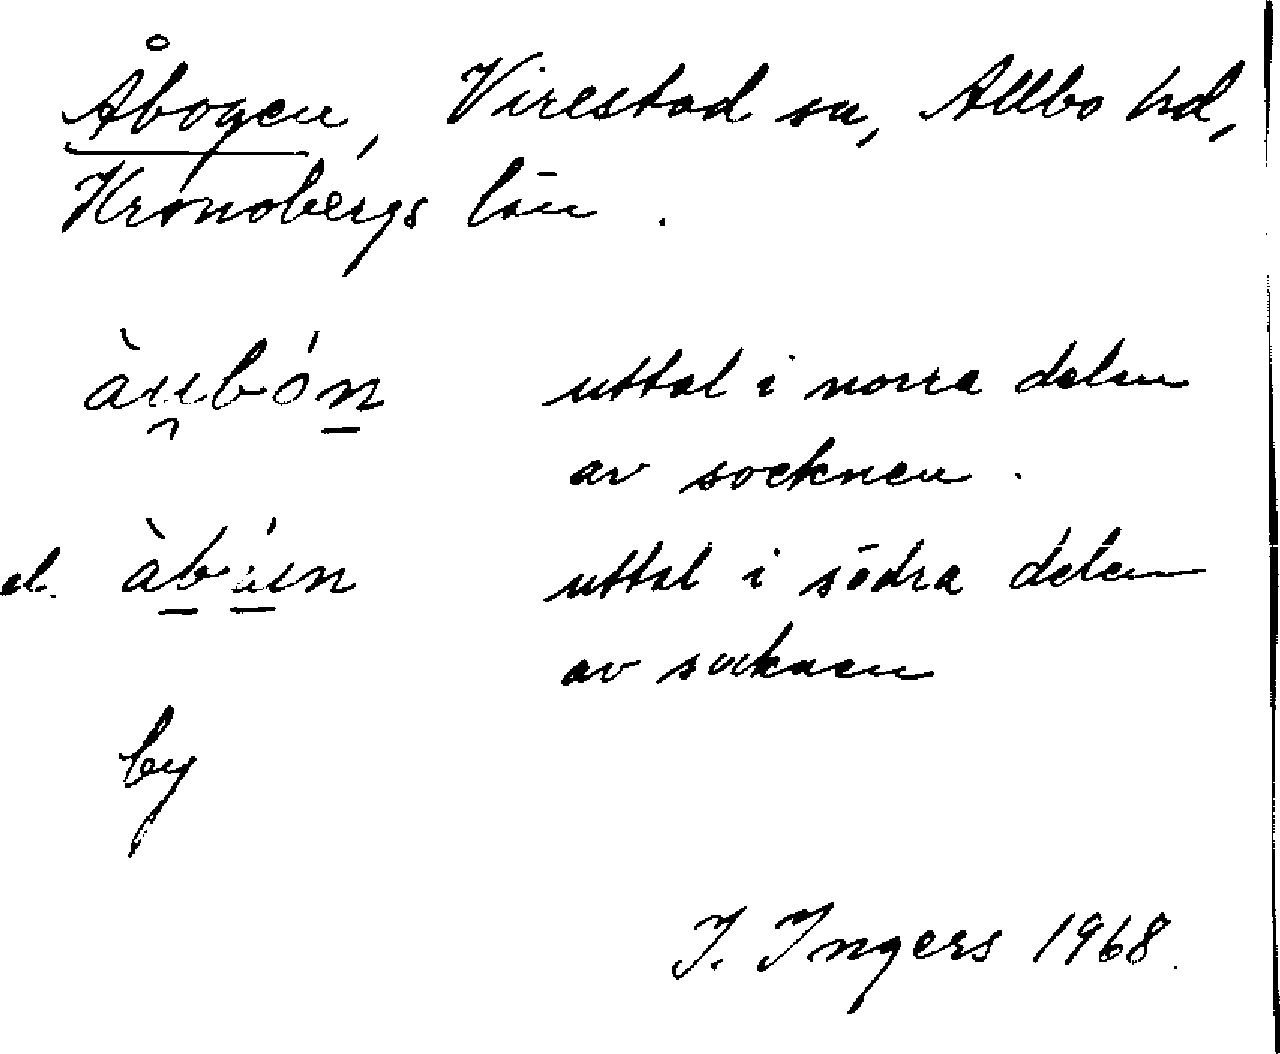 Åbogen, Virestad sn, Allbo hd,
Kronobergs län.
àu̯bón̲ uttal i norra delen
av socknen.
el. àb̲ú̲n uttal i södra delen
av socknen
by
I. Ingers 1968.